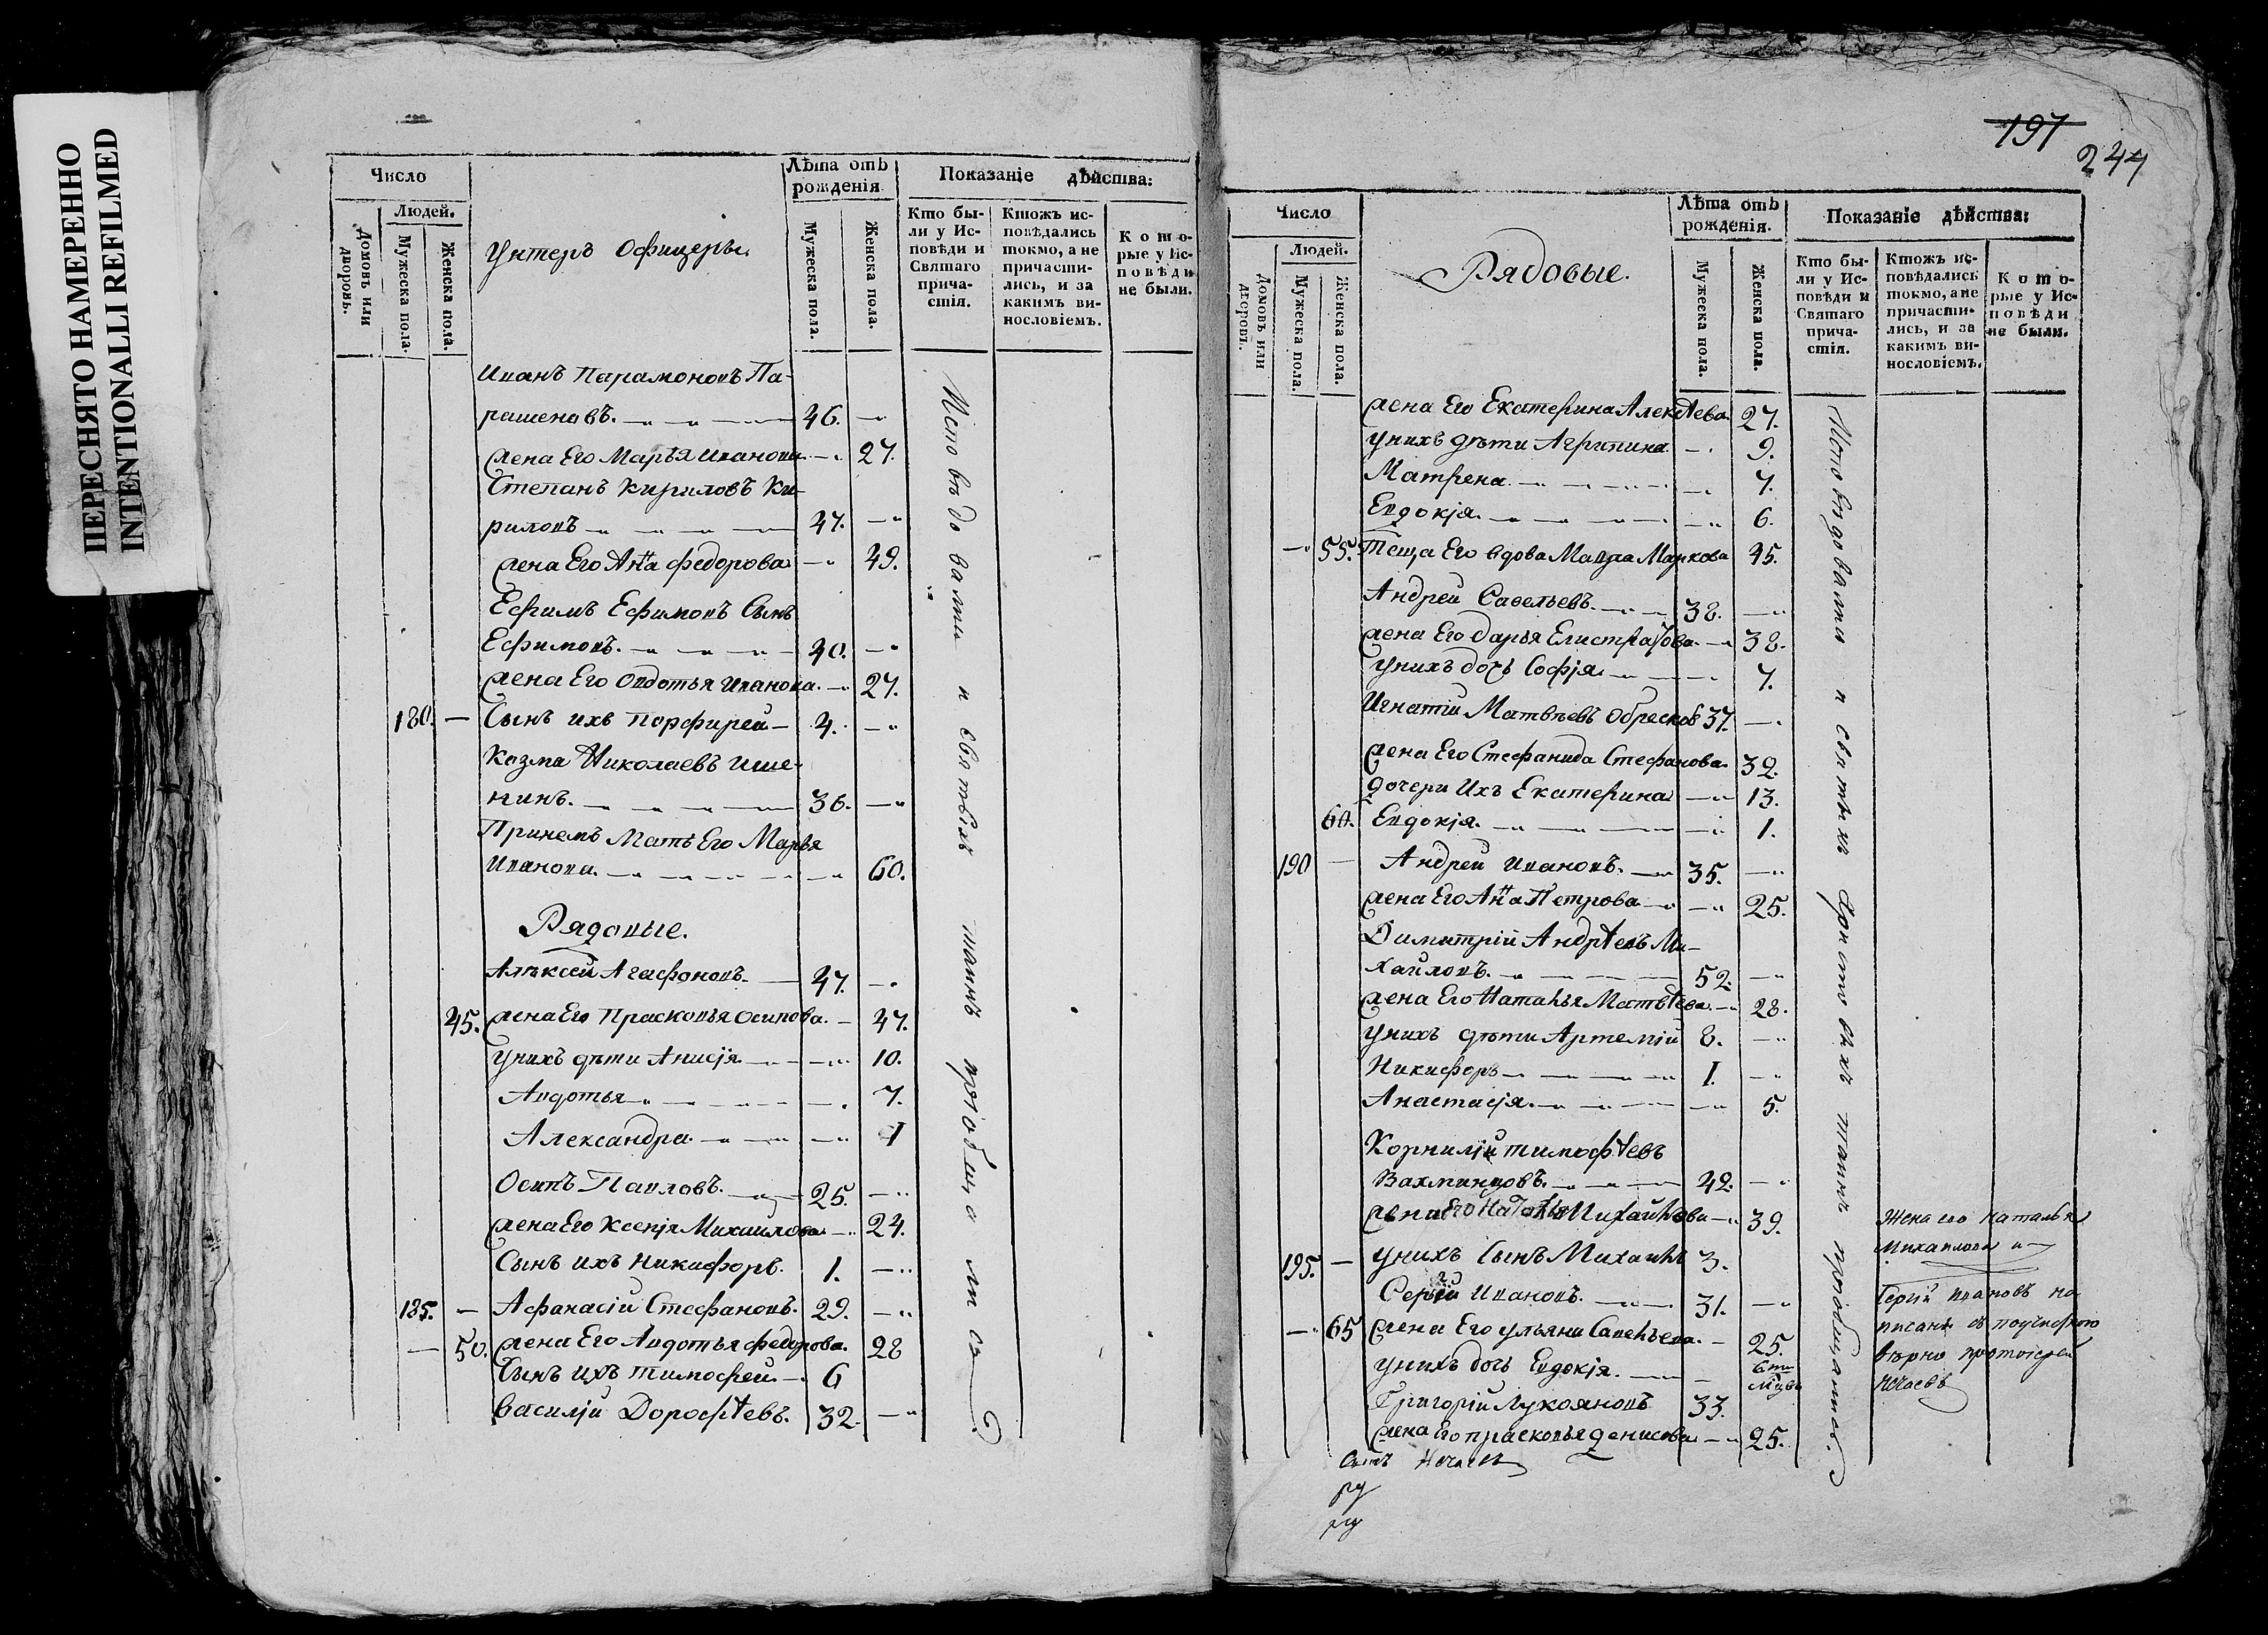 ПЕРЕСНЯТО НАМЕРЕННО
INTENTIONALLI REFILMED
Число
Людей.
Домовъ или дворовъ.
Мужеска пола.
Женска пола.
Унтеръ Офицеры.
Лѣта отъ рожденія
Мужеска пола.
Женска пола.
Показаніе дѣйства:
Кто были у Исповѣди и Святаго причастія.
Ктожъ исповѣдались токмо, а не причастились, и за какимъ винословіемъ.
Которые у Исповѣди не были.
Иванъ Парамоновъ Па-
рашеновъ. 46.
жена Его Марья Иванова 27.
Степанъ Кириловъ Ки-
риловъ 47.
жена Его Анна федорова 49.
Ефимъ Ефимовъ Сынъ
Ефимовъ. 40.
жена Его Овдотья Иванова. 27.
180. Сынъ ихъ Порфирей 4.
Козма Николаевъ Ише-
нинъ. 36.
Принемъ Мать Его Марья
Иванова. 60.
Рядовые.
Алѣксей Агафоновъ. 47.
45. жена Его Прасковья Осипова. 47.
унихъ дѣти Анисія 10.
Авдотья 7.
Александра 1
Осипъ Павловъ. 25.
жена Его Ксенія Михаилова 24.
Сынъ ихъ Никифоръ. 1.
185. Афанасіи Стефановъ. 29.
50. жена Его Авдотья федорова. 28
Сынъ ихъ Тимофей 6
Василій Дорофѣевъ. 32.
Исповѣдовались и святыхъ таинъ пріобщались
197
244
Число
Людей.
Домовъ или дворовъ.
Мужеска пола.
Женска пола.
Рядовые.
Лѣта отъ рожденія.
Мужеска пола.
Женска пола.
Показаніе дѣйства:
Кто были у Исповѣди и Святаго причастія.
Ктожъ исповѣдались токмо, а не причастились, и за какимъ винословіемъ.
Которые у Исповѣди не были.
жена Его Екатерина Алексѣева. 27.
унихъ дѣти Агрипина. 9.
Матрена 7.
Евдокія. 6.
55. Теща Его вдова Мавра Маркова 45.
Андреи Савельевъ. 38.
жена Его Дарья Елистратова 38.
унихъ дочь Софія. 7.
Игнатіи Матвѣевъ Обресков 37.
жена Его Стефанида Стефанова. 32.
дочери Ихъ Екатерина 13.
60. Евдокія. 1.
190 Андреи Ивановъ. 35.
жена Его Анна Петрова 25.
Димитрій Андрѣевъ Ми-
хайловъ. 52.
жена Его Наталья Матвѣева. 28.
унихъ дѣти Артемій 8.
Никифоръ 1.
Анастасія. 5.
Корнилій тимофѣевъ
Вахминцовъ. 42.
жена Его Наталья Михайлова 39.
195. унихъ Сынъ Михаилъ 3.
Сергій Ивановъ. 31.
65 жена Его ульяна Савельева. 25.
унихъ дочь Евдокія.
Григорій Лукояновъ 33.
жена Его прасковья денисова 25.
Исповѣдовались и святыхъ Христовыхъ таинъ пріобщались.
Жена его Наталья
Михаилова и
Сергій Ивановъ на-
писанъ съ почисткою
вѣрно протоіерей
Нечаевъ
Нечаевъ
ру
ру